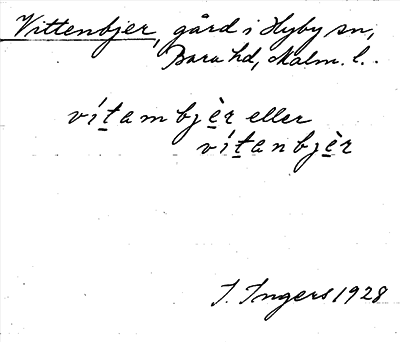 Vittenbjer, gård i Hyby sn,
Bara hd, Malm. l.
vítambjèr eller
vítanbjèr
I. Ingers 1928